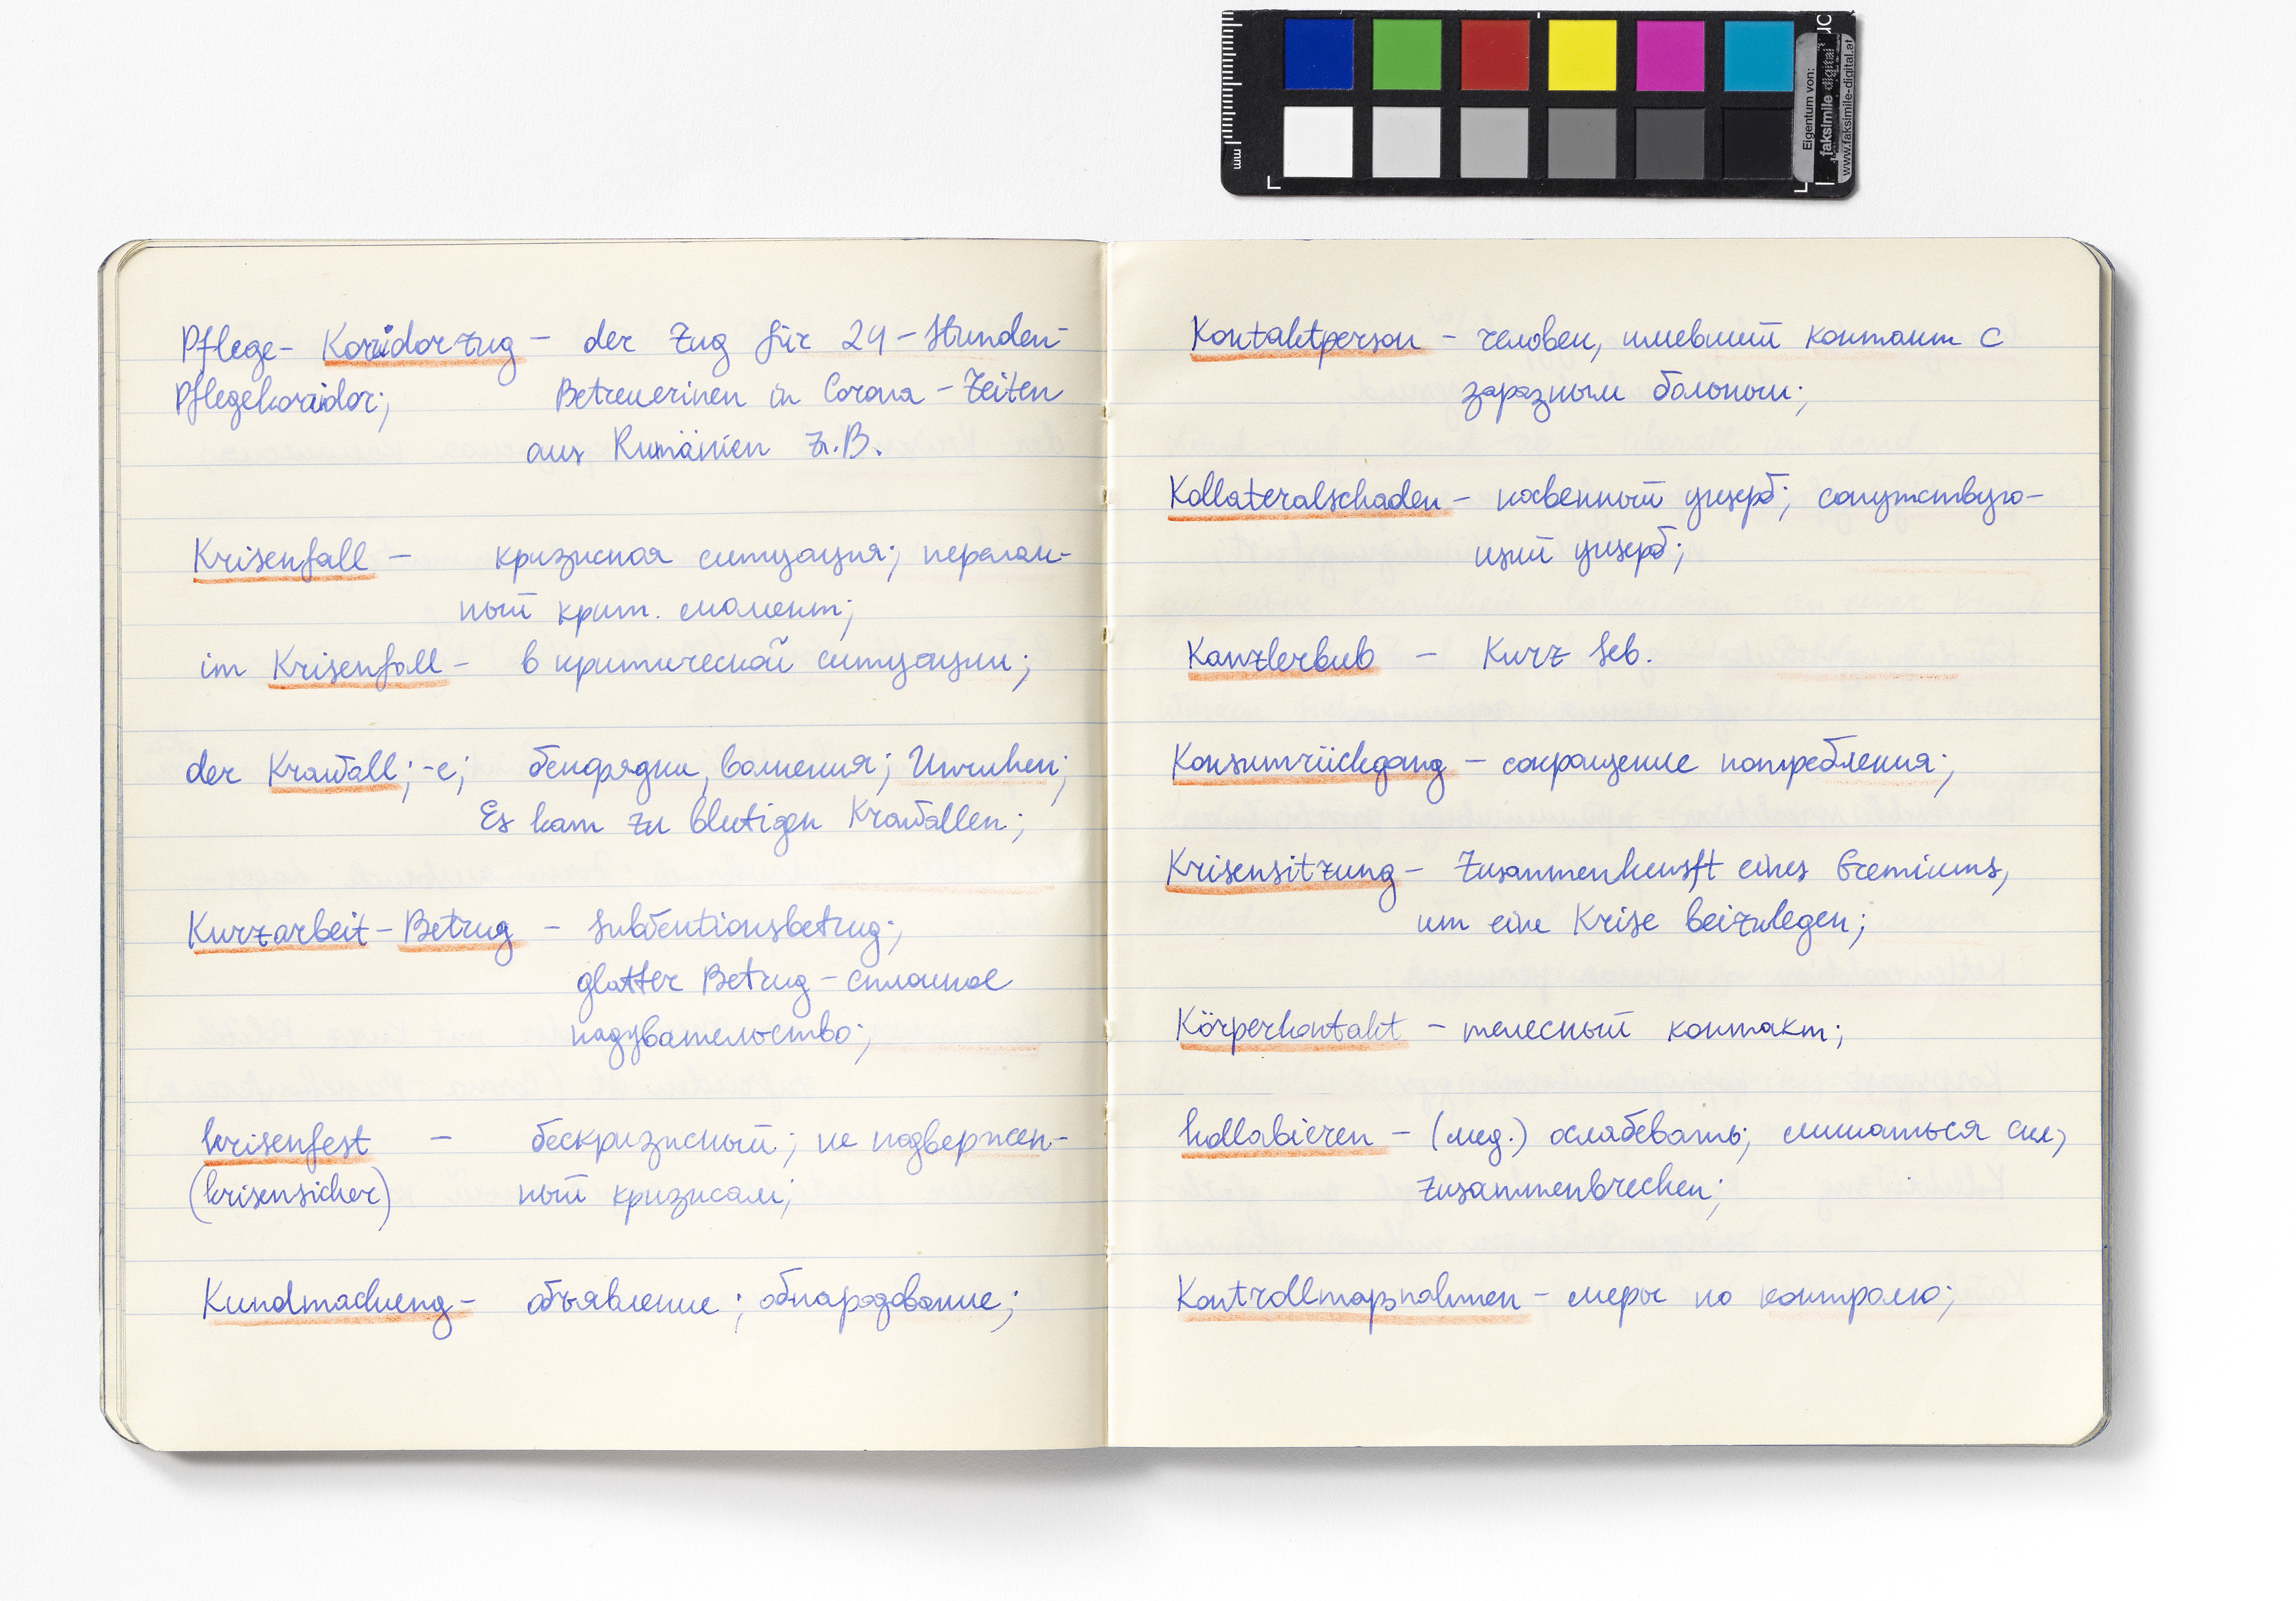 mm
Eigentum von:
faksimile digital
www.faksimile-digital.at
Pflege- Korridorzug – der Zug für 24-Stunden-
Pflegekorridor; Betreuerinen in Corona-Zeiten
aus Rumänien z.B.
Krisenfall – кризисная ситуация; перелом-
ный крит. момент;
im Krisenfall – в критической ситуации;
der Krawall; -e; беспорядки, волнения; Unruhen;
Es kam zu blutigen Krawallen;
Kurzarbeit-Betrug – Subventionsbetrug;
glatter Betrug – сплошное
надувательство;
krisenfest – бескризисный; не подвержен-
(krisensicher) ный кризисам;
Kundmachung – объявление; обнародование;
Kontaktperson – человек, имевший контакт с
заразным больным;
Kollateralschaden – косвенный ущерб; сопутствую-
щий ущерб;
Kanzlerbub – Kurz Seb.
Konsumrückgang – сокращение потребления;
Krisensitzung – Zusammenkunft eines Gremiums,
um eine Krise beizulegen;
Körperkontakt – телесный контакт;
kollabieren – (мед.) ослабевать; лишаться сил,
zusammenbrechen;
Kontrollmaßnahmen – меры по контролю;